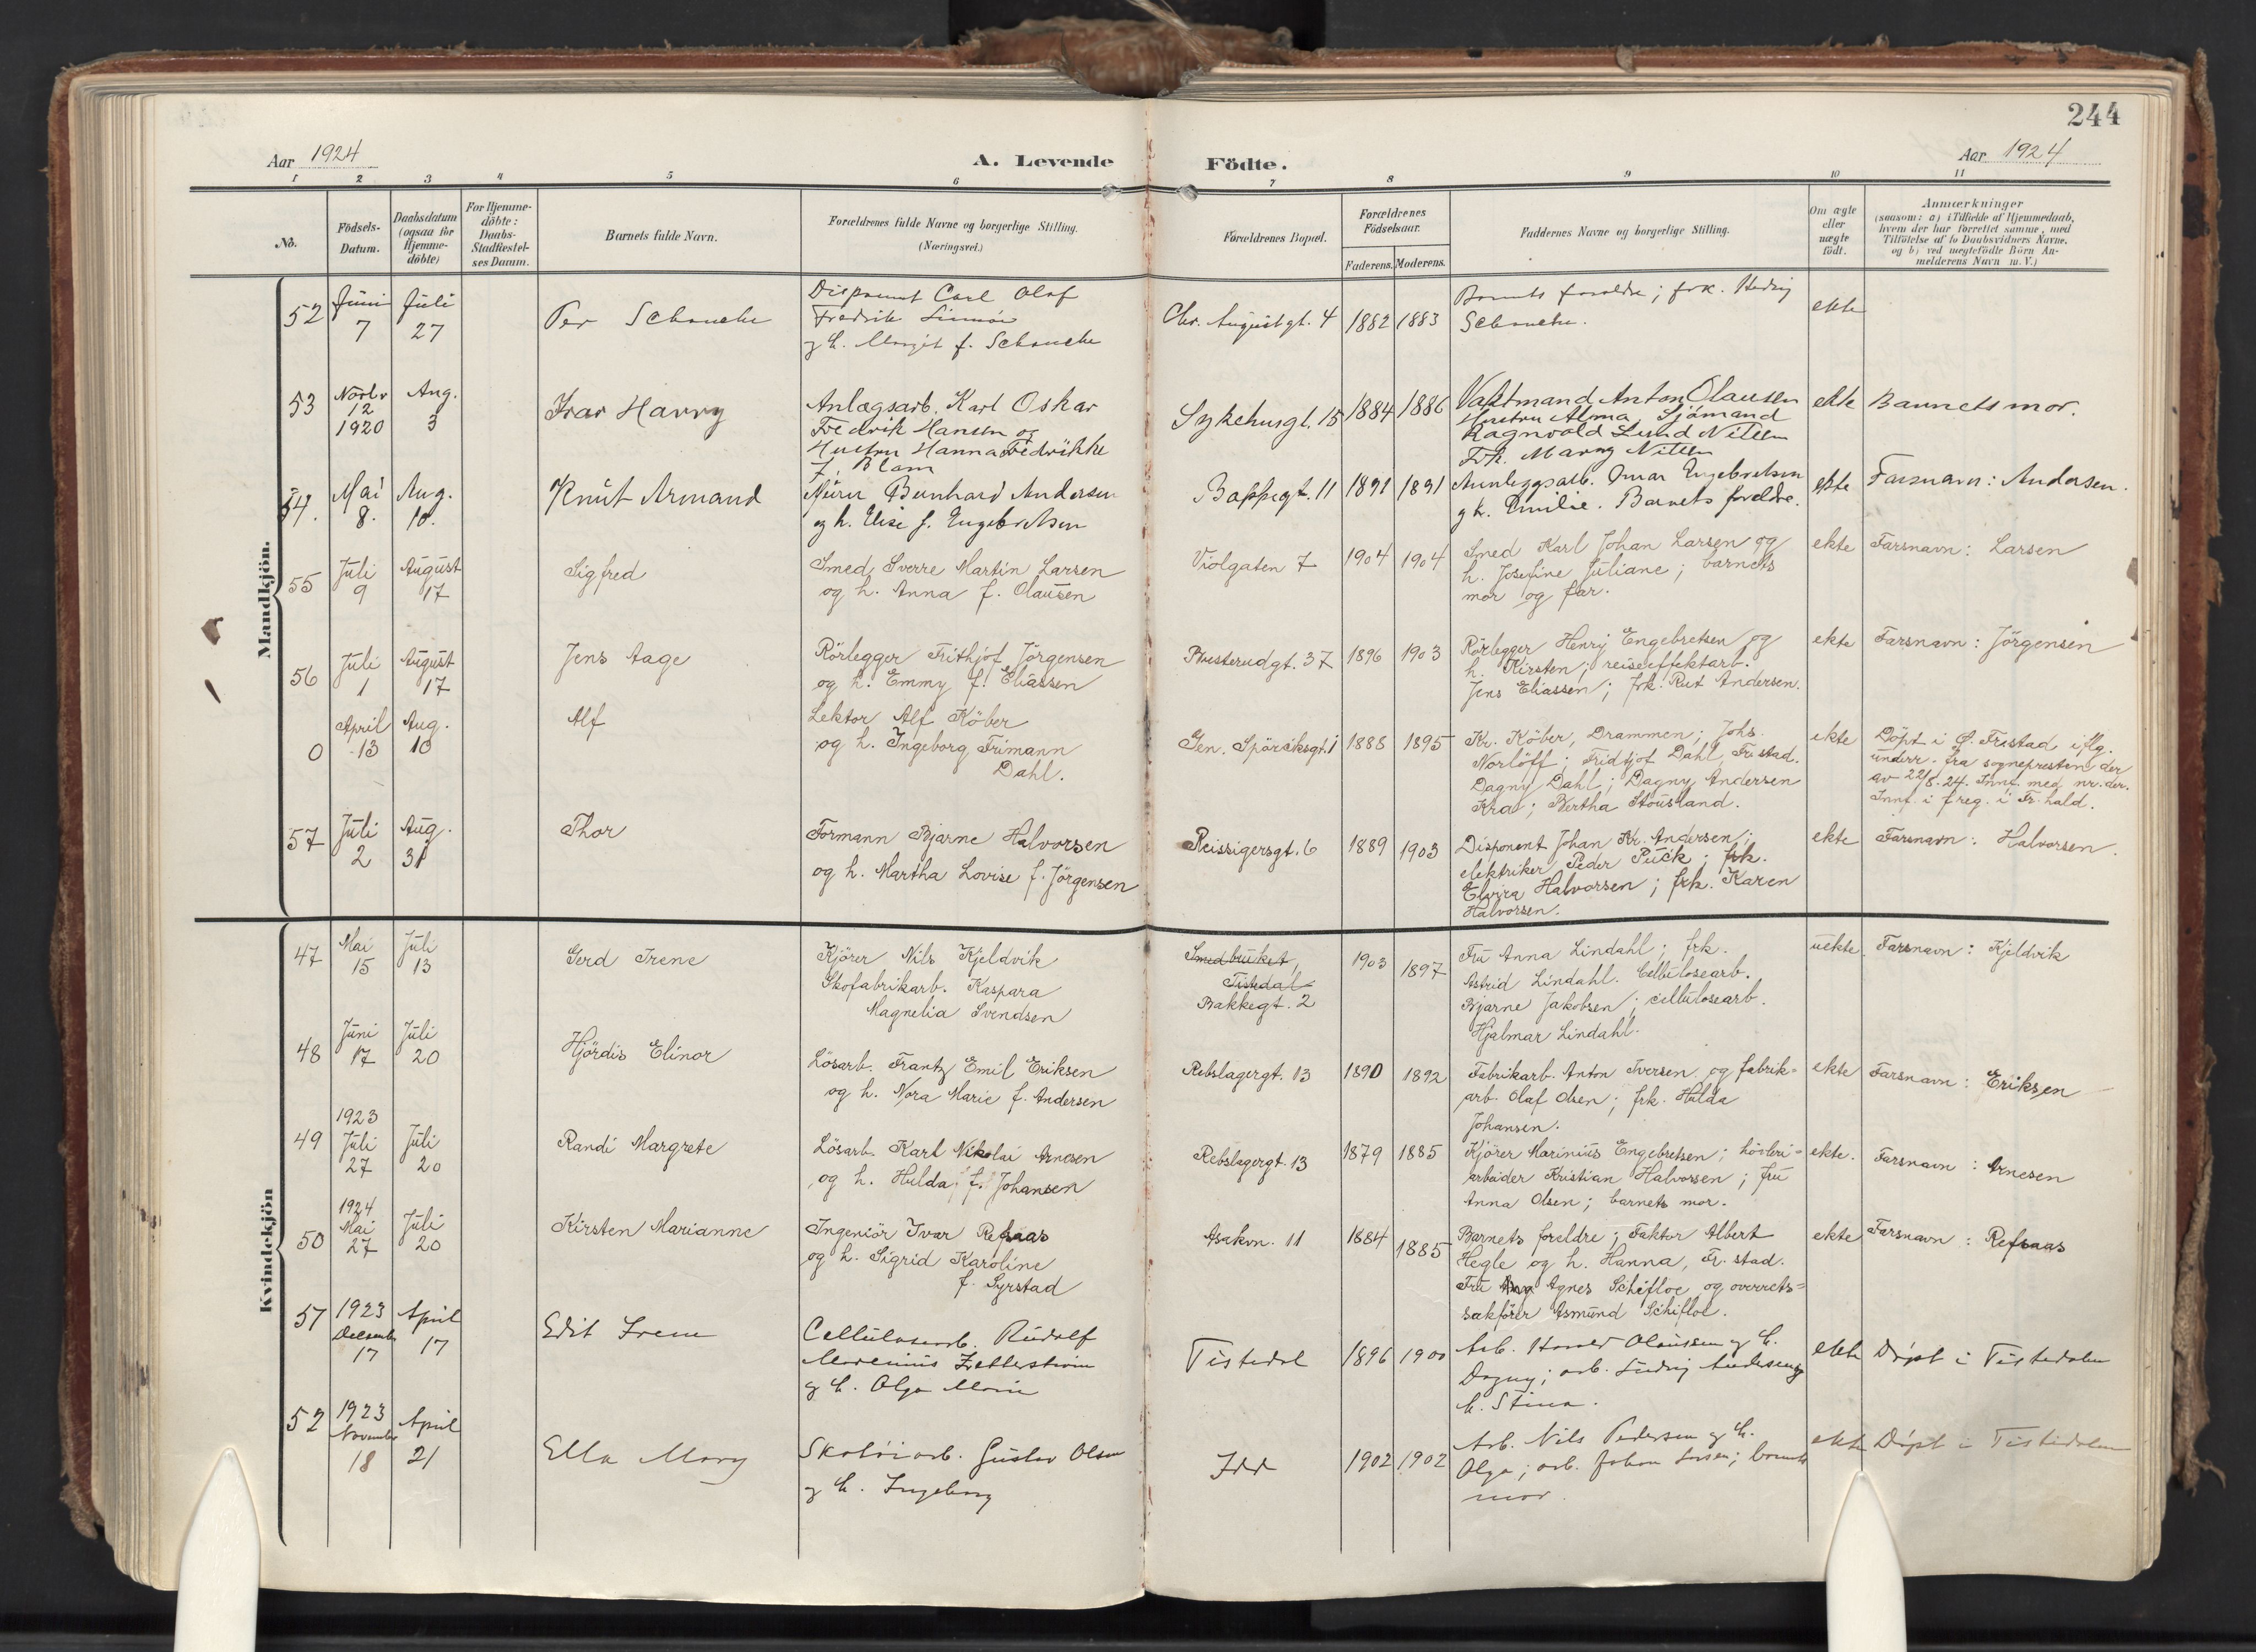 244
Aar 1924
A. Levende Födte.
Aar 1924
1 2 3 4 5 6 7 8 9 10 11
No.
Födsels-
Datum.
Daabsdatum
(ogsaa for
Hjemme-
döbte)
For Hjemme-
döbte:
Daabs-
Stadfæstel-
ses Datum.
Barnets fulde Navn.
Forældrenes fulde Navne og borgerlige Stilling.
(Næringsvei.)
Forældrenes Bopæl.
Forældrenes
Födselsaar.
Faderens. Moderens.
Faddernes Navne og borgerlige Stilling.
Om ægte
eller
uægte
födt.
Anmærkninger
(saasom: a) i Tilfælde af Hjemmedaab,
hvem der har forrettet samme, med
Tilföielse af to Daabsvidners Navne,
og b) ved uægtefödte Börn An-
melderens Navn m. V.)
Mandkjön.
52
Juni
7
Juli
27
Per Schouche
Disponent Carl Olaf
Fredrik
og h. Margit f. Schouche
Chr. Augustgt. 4
1882 1883
Barnets foreldre; frk. Hedvig
Schouche.
ekte
53
Novbr
12
1920
Aug.
3
Ivar Harry
Anlægsarb. Karl Oskar
Fredrik Hansen og
Hustru Hanna Fredrikke
f. Blom
Sykehusgt. 15
1884 1886
Vaktmand Anton Olausen
Hustru Alma, Sjömand
Ragnvald Lund Nilsen
Frk. Marny Nilsen
ekte
Barnets mor.
54.
Mai
8.
Aug.
10.
Knut Armand
Murer Bernhard Andersen
og h. Elise f. Engebretsen
Boppegt. 11
1891 1891
Annleggsarb. Omar Engebretsen
og h. Emilie. Barnets foreldre.
ekte
Farsnavn: Andersen.
55
Juli
9
August
17
Sigfred
Smed Sverre Martin Larsen
og h. Anna f. Olausen
Violgaten 7
1904 1904
Smed Karl Johan Larsen og
h. Josefine Juliane; barnets
mor og far.
ekte
Farsnavn: Larsen
56
Juli
1
August
17
Jens Aage
Rörlegger Frithjof Jörgensen
og h. Emmy f. Eliassen
Busterudgt. 37
1896 1903
Rörlegger Henry Engebretsen og
h. Kirsten; reiseeffektarb.
Jens Eliassen; frk. Rut Andersen.
ekte
Farsnavn: Jörgensen
0
April
13
Aug.
10
Alf
Lektor Alf Köber
og h. Ingeborg Frimann
Dahl.
Gen. Spörcksgt. 1
1888 1895
Kr. Köber, Drammen; Johs.
Norlöff; Fridtjof Dahl, Fr.stad.
Dagny Dahl; Dagny Andersen
Kra; Bertha Stousland.
ekte
Döpt i Ø. Fr.stad iflg.
underr. fra sognepresten der
av 22/8.24. Innf. med nr. der.
Innf. i freg. i Fr.hald.
57
Juli
2
Aug.
31
Thor
Formann Bjarne Halvorsen
og h. Martha Lovise f. Jörgensen
Reissigersgt. 6
1889 1903
Disponent Johan Kr. Andersen;
elektriker Peder Puck; frk.
Elvira Halvorsen; frk. Karen
Halvorsen.
ekte
Farsnavn: Halvorsen.
Kvindekjön
47
Mai
15
Juli
13
Gerd Irene
Kjörer Nils Kjeldvik
Skofabrikarb. Kaspara
Magnelia Svendsen
Smedbruket,
Tistedal
Bakkegt. 2
1903 1897
Fru Anna Lindahl; frk.
Astrid Lindahl. Cellulosearb.
Bjarne Jakobsen; cellulosearb.
Hjalmar Lindahl.
uekte.
Farsnavn: Kjeldvik
48
Juni
17
Juli
20
Hjördis Elinor
Lösarb. Frantz Emil Eriksen
og h. Nora Marie f. Andersen
Rebslagergt. 13
1890 1892
Fabrikarb. Anton Iversen og fabrik=
arb. Olaf Olsen; frk. Hulda
Johansen.
ekte
Farsnavn: Eriksen
49
1923
Juli
27
Juli
20
Randi Margrete
Lösarb. Karl Nikolai Arnesen
og h. Hulda, f. Johansen
Rebslagergt. 13
1879 1885
Kjörer Marinius Engebretsen; hövleri=
arbeider Kristian Halvorsen; fru
Anna Olsen; barnets mor.
ekte.
Farsnavn: Arnesen
50
1924
Mai
27
Juli
20
Kirsten Marianne
Ingeniör Ivar Refsaas
og h. Sigrid Karoline
f. Syrstad
Asakvn. 11
1884 1885
Barnets foreldre; Faktor Albert
Hegle og h. Hanna, Fr. stad.
Fru Agnes Schiefloe og overrets=
sakförer Asmund Schifloe.
ekte
Farsnavn: Refsaas
51
1923
Decembr
17
April
17
Edit Irene
Cellulosearb. Rudolf
Marenius Zetterström
og h. Olga Marie
Tistedal
1896 1900
Arb. Harald Olaussen og h.
Dagny; arb. Ludvig Andersen og
h. Stina.
ekte
Döpt i Tistedalen
52
1923
November
18
April
21
Ella Mary
Skotöiarb. Gustav Olsen
og h. Ingeborg
Idd
1902 1902
Arb. Nils Pedersen og h.
Olga; arb. Johan Larsen; barnets
mor.
ekte
Döpt i Tistedalen